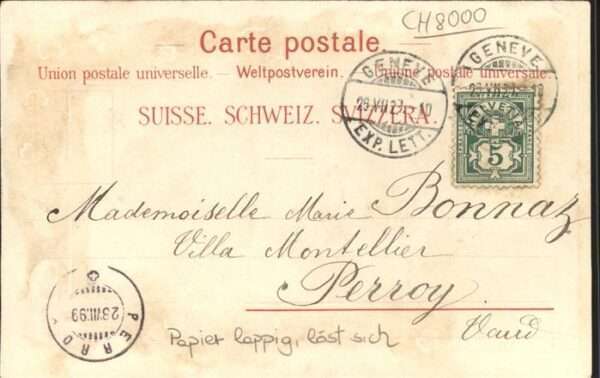 CH8000
Carte postale.
Union postale universelle. – Weltpostverein. – Unione postale universale.
SUISSE. SCHWEIZ. SVIZZERA.
GENÈVE
EXP. LETT.
GENÈVE
HELVETIA
5
Mademoiselle Marie Bonnaz
Villa Montellier
Perroy.
Vaud
PERROY
28.VII.99
Papier lappig, löst sich